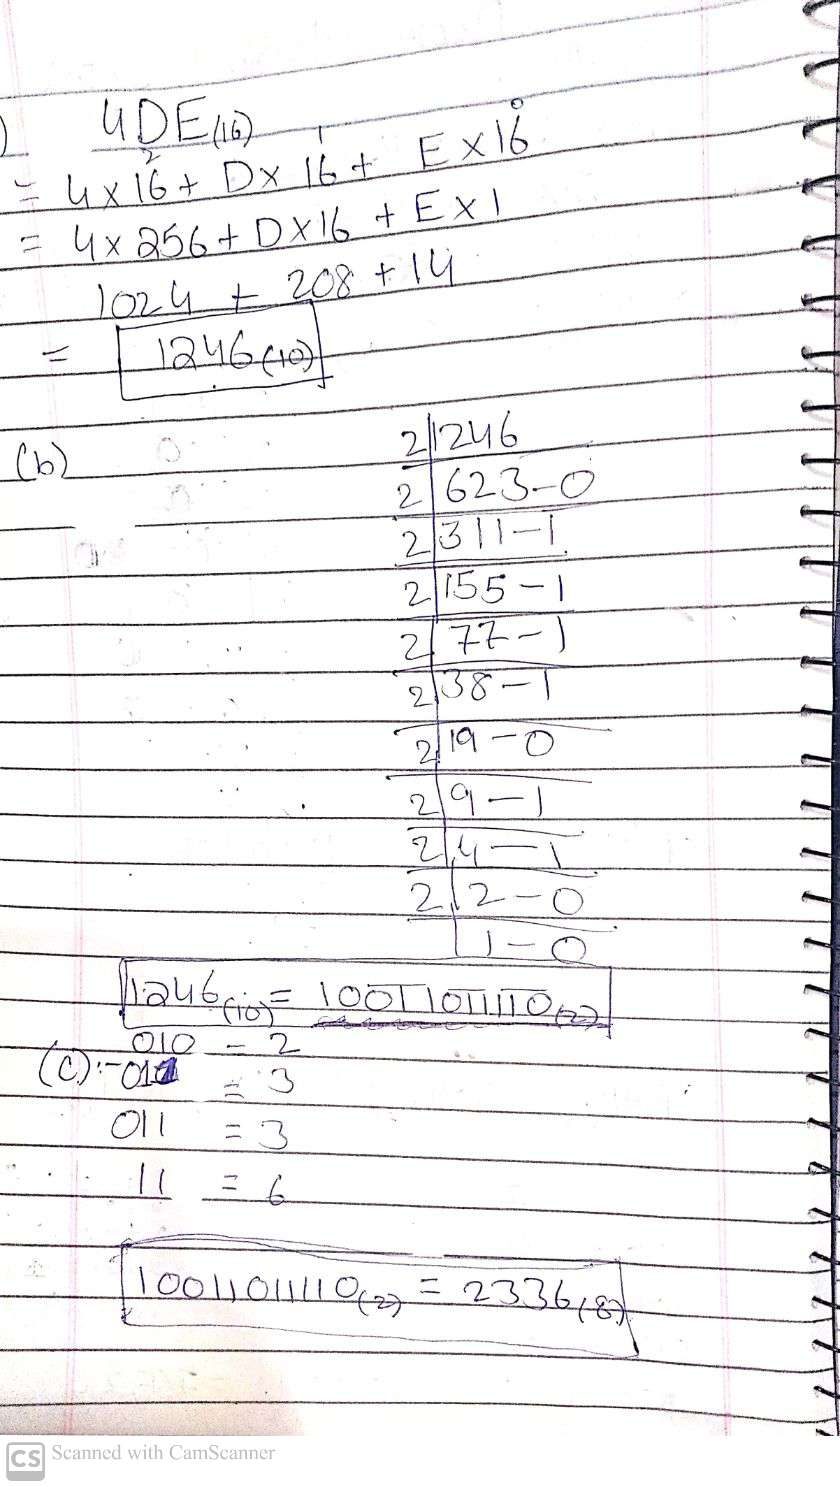 )
4DE(16)
= 4x16² + Dx16¹ + Ex16⁰
= 4x256 + Dx16 + Ex1
1024 + 208 + 14
= 1246(10)
(b)
2|1246
2|623-0
2|311-1
2|155-1
2|77-1
2|38-1
2|19-0
2|9-1
2|4-1
2|2-0
|1-0
1246(10) = 10011011110(2)
010 - 2
(C):- 011 = 3
011 = 3
11 = 6
10011011110(2) = 2336(8)
CS Scanned with CamScanner